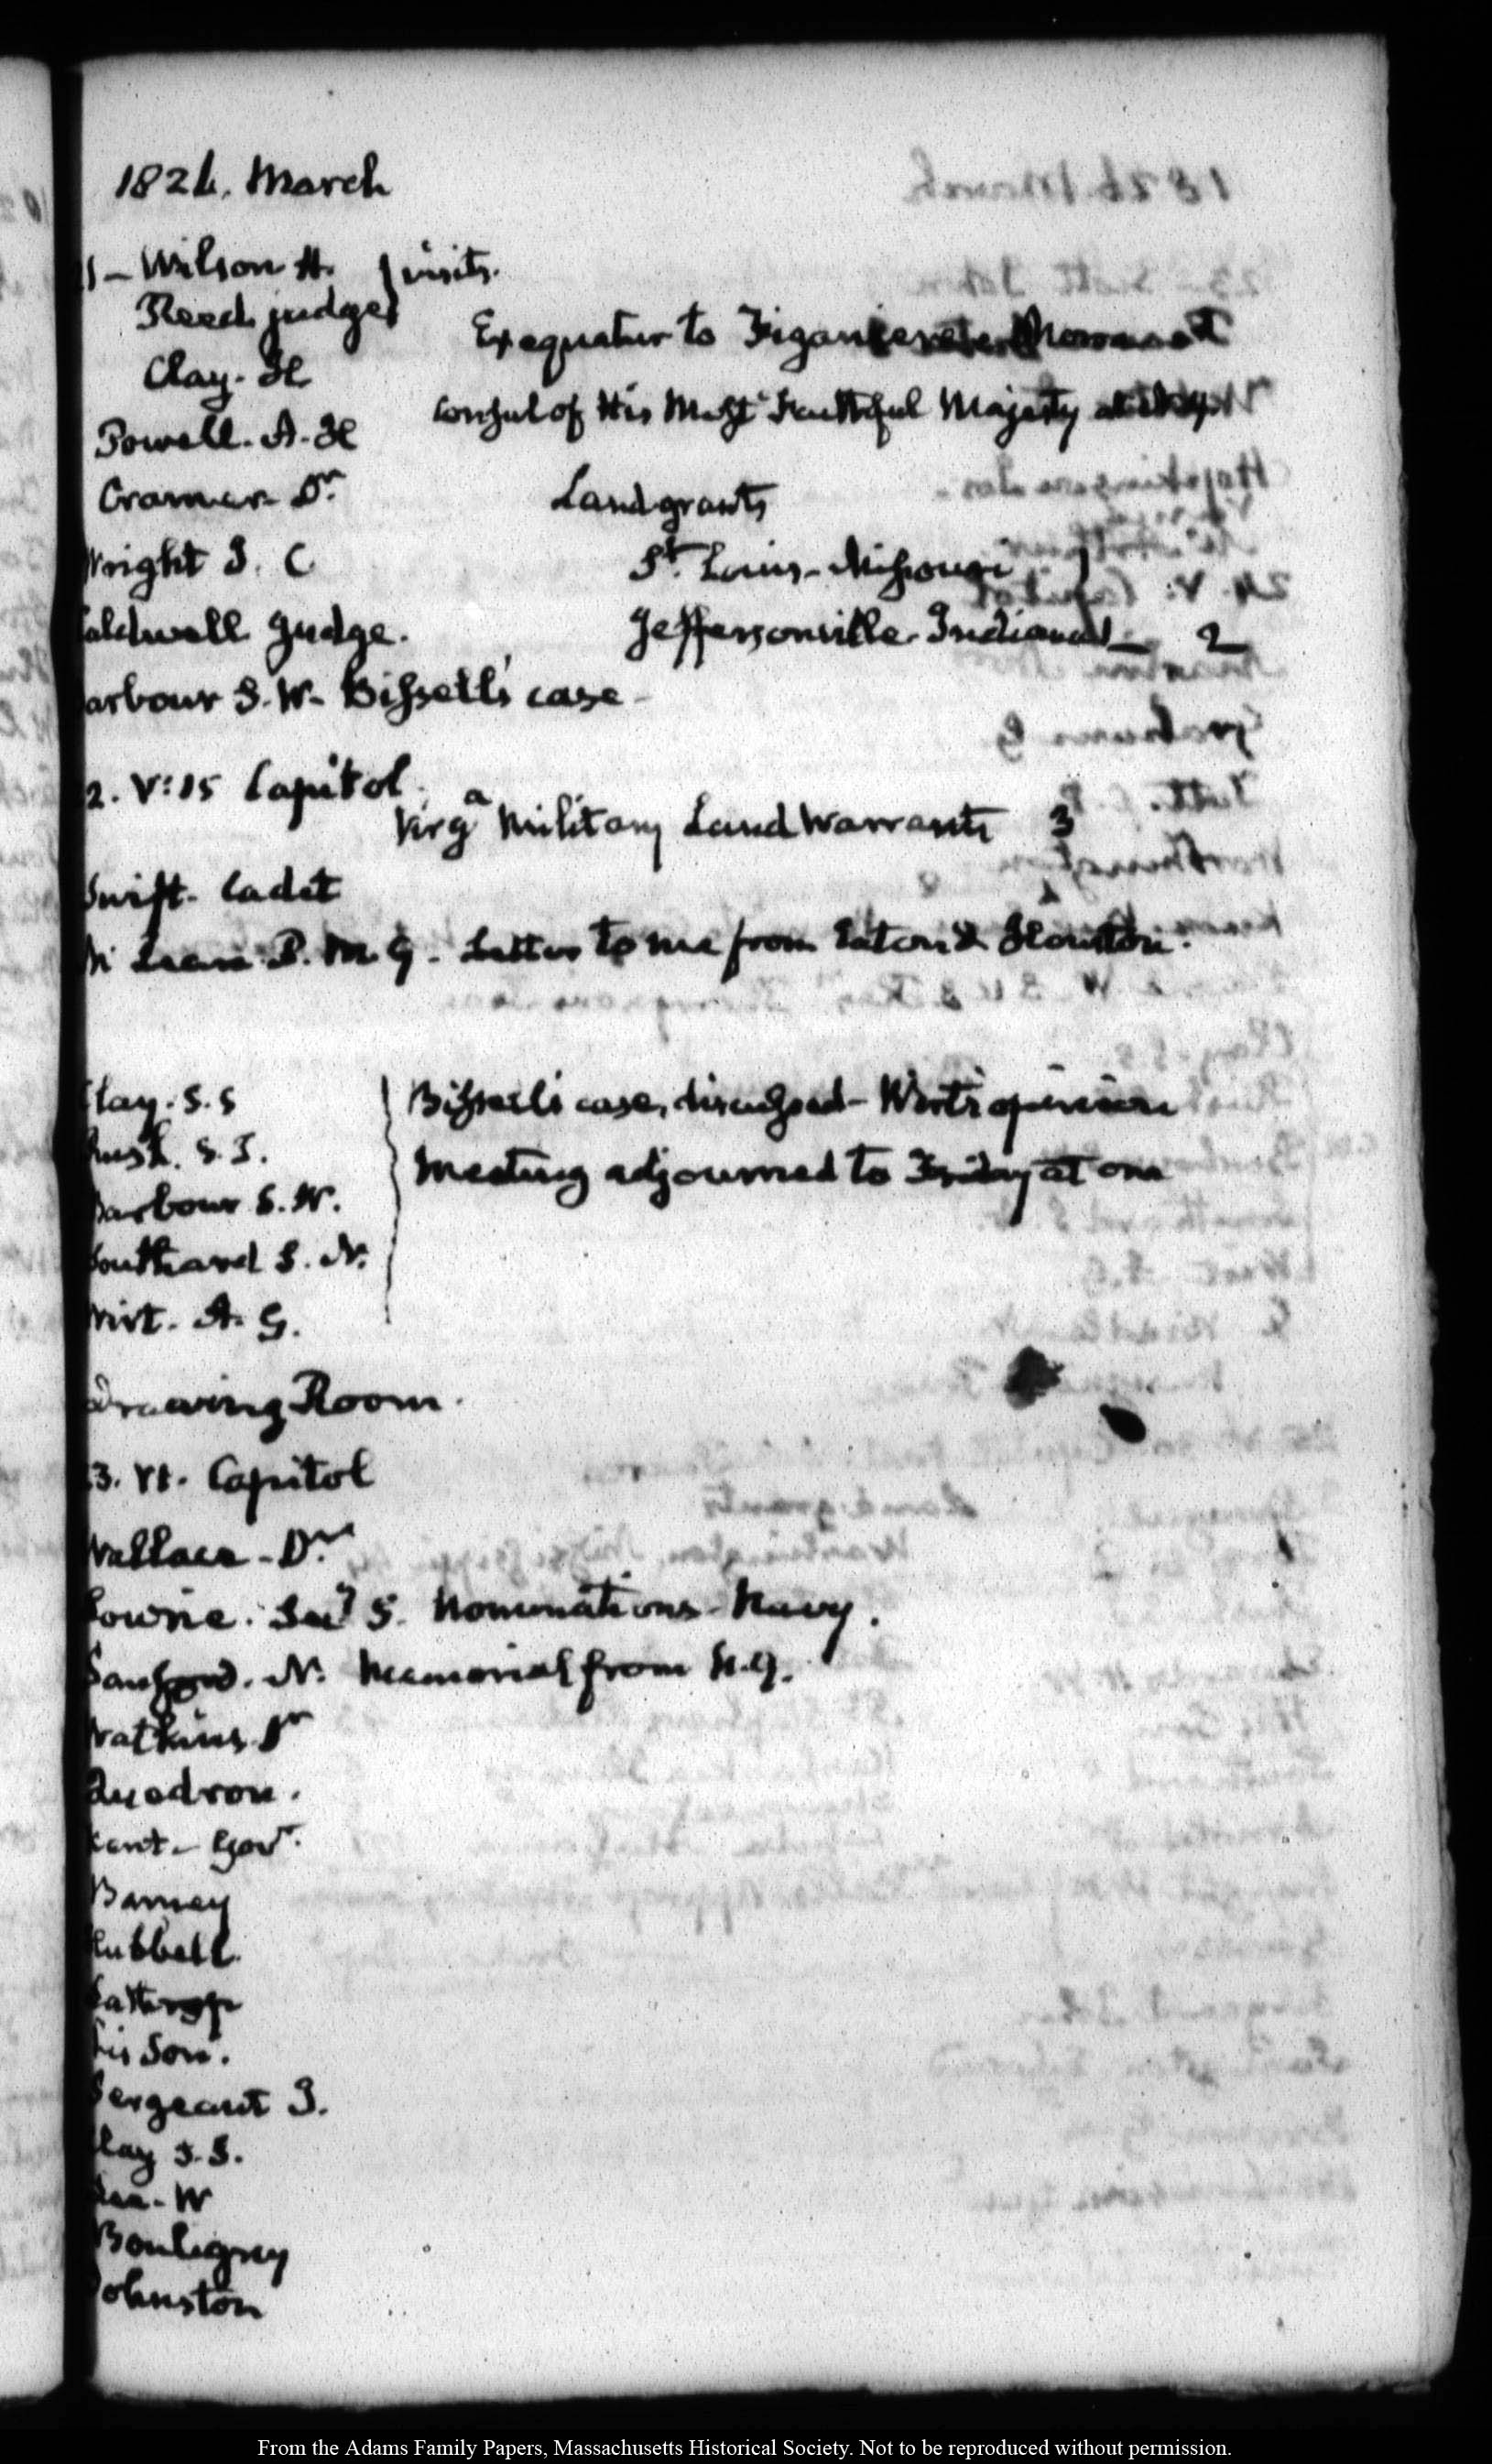 1826. March
21 – Wilson H. } visits.
Reed judge
Clay. H
Exequatur to
Powell. A. H
Consul of His Most Faithful Majesty
Cramer Dr.
Land grants
Wright J. C
St. Louis – Missouri 1
Caldwell Judge.
Jeffersonville – Indiana 1 — 2
Barbour S. W – Bissell's case –
22. V:15 Capitol.
Virga Military Land Warrants 3
Swift – Cadet
Mc Lean P. M. G – Letter to me from Eaton & Houston.
Clay. S. S
Bissell's case, discussed – Wirt's opinion
Rush. S. T.
Meeting adjourned to Friday at one
Barbour S. W.
Southard S. N.
Wirt. A. G.
Drawing Room.
23. VI. Capitol
Wallace – Dr.
Lowrie. Secy S. Nominations – Navy.
Sanford. N. Memorial from N. Y.
Watkins Dr
Quadron.
Kent – Govr.
Barney
Hubbell
his Son.
Sergeant J.
Clay S. S.
Lee – W
Bouligny
Johnston
From the Adams Family Papers, Massachusetts Historical Society. Not to be reproduced without permission.